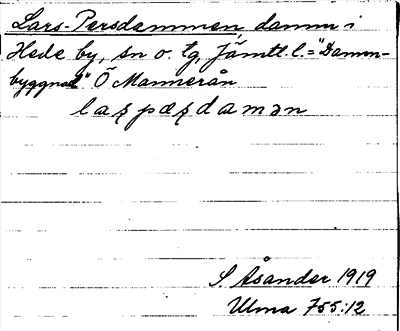 Lars-Persdammen, damm i
Hede by, sn o. tg, Jämtl. l. = "Damm-
byggnad". Ö Mannerån
laʂ pæʂdamən
S. Åsander 1919
Ulma 755:12